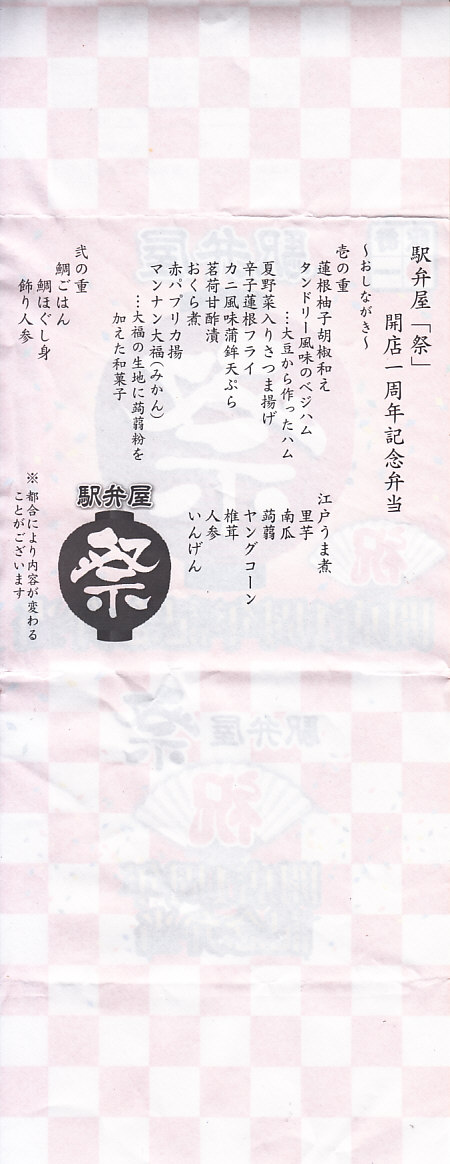 駅弁屋「祭」
開店一周年記念弁当
～おしながき～
壱の重
蓮根柚子胡椒和え
タンドリー風味のベジハム
…大豆から作ったハム
夏野菜入りさつま揚げ
辛子蓮根フライ
カニ風味蒲鉾天ぷら
茗荷甘酢漬
おくら煮
赤パプリカ揚
マンナン大福(みかん)
…大福の生地に蒟蒻粉を
加えた和菓子
江戸うま煮
里芋
南瓜
蒟蒻
ヤングコーン
椎茸
人参
いんげん
弐の重
鯛ごはん
鯛ほぐし身
飾り人参
駅弁屋
祭
※ 都合により内容が変わる
ことがございます